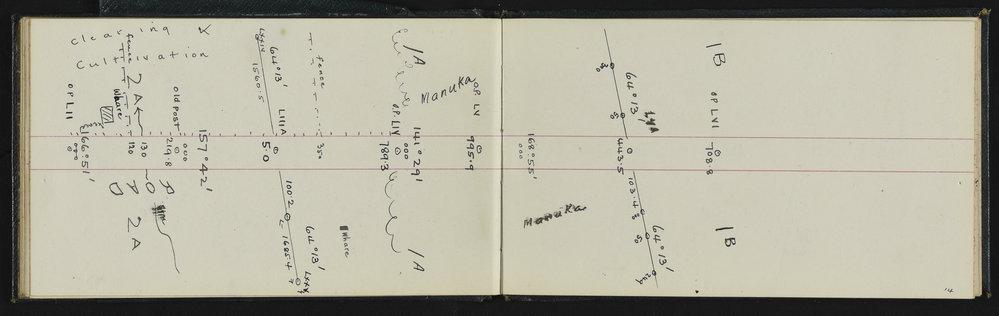 1B
OP LVI
708.8
1B
64°13'
443.5
103.4
64°13'
229
168°55'
000
Manuka
14
OP LV
995.9
Manuka
1A
OP LIV
141°29'
000
789.3
1A
fence
350
Whare
LXXIV
64°13'
1560.5
LIIIA
50
100.2
64°13'
1685.4
LXXX
157°42'
000
Old Post
219.8
130
120
ROAD
Clearing &
Cultivation
fence
2A
Whare
2A
OP LII
166°51'
000